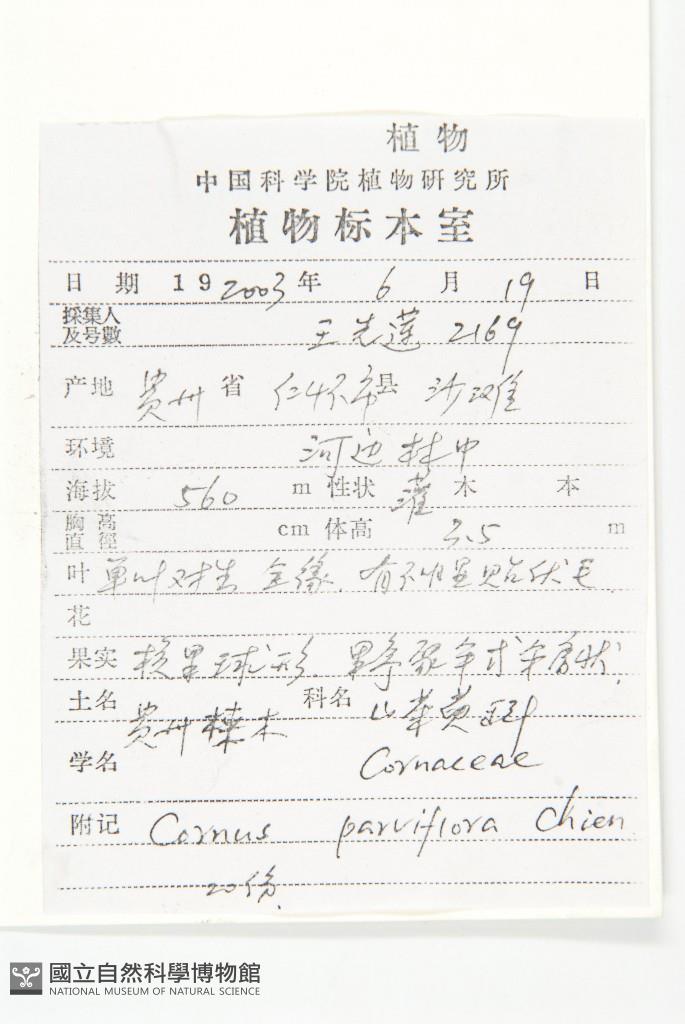 植物
中国科学院植物研究所
植物标本室
日期 19 2003年 6 月 19 日
採集人及号數 王先莲 2169
产地 贵州省 仁怀市县 沙滩
环境 河边林中
海拔 560 m 性状 灌木 本
胸高直徑 cm 体高 3.5 m
叶 单叶对生 全缘、有不明显贴伏毛
花
果实 核果球形、果序聚伞或伞房状
土名 贵州梾木 科名 山茱萸科
学名 Cornaceae
附记 Cornus parviflora Chien
20份
國立自然科學博物館
NATIONAL MUSEUM OF NATURAL SCIENCE